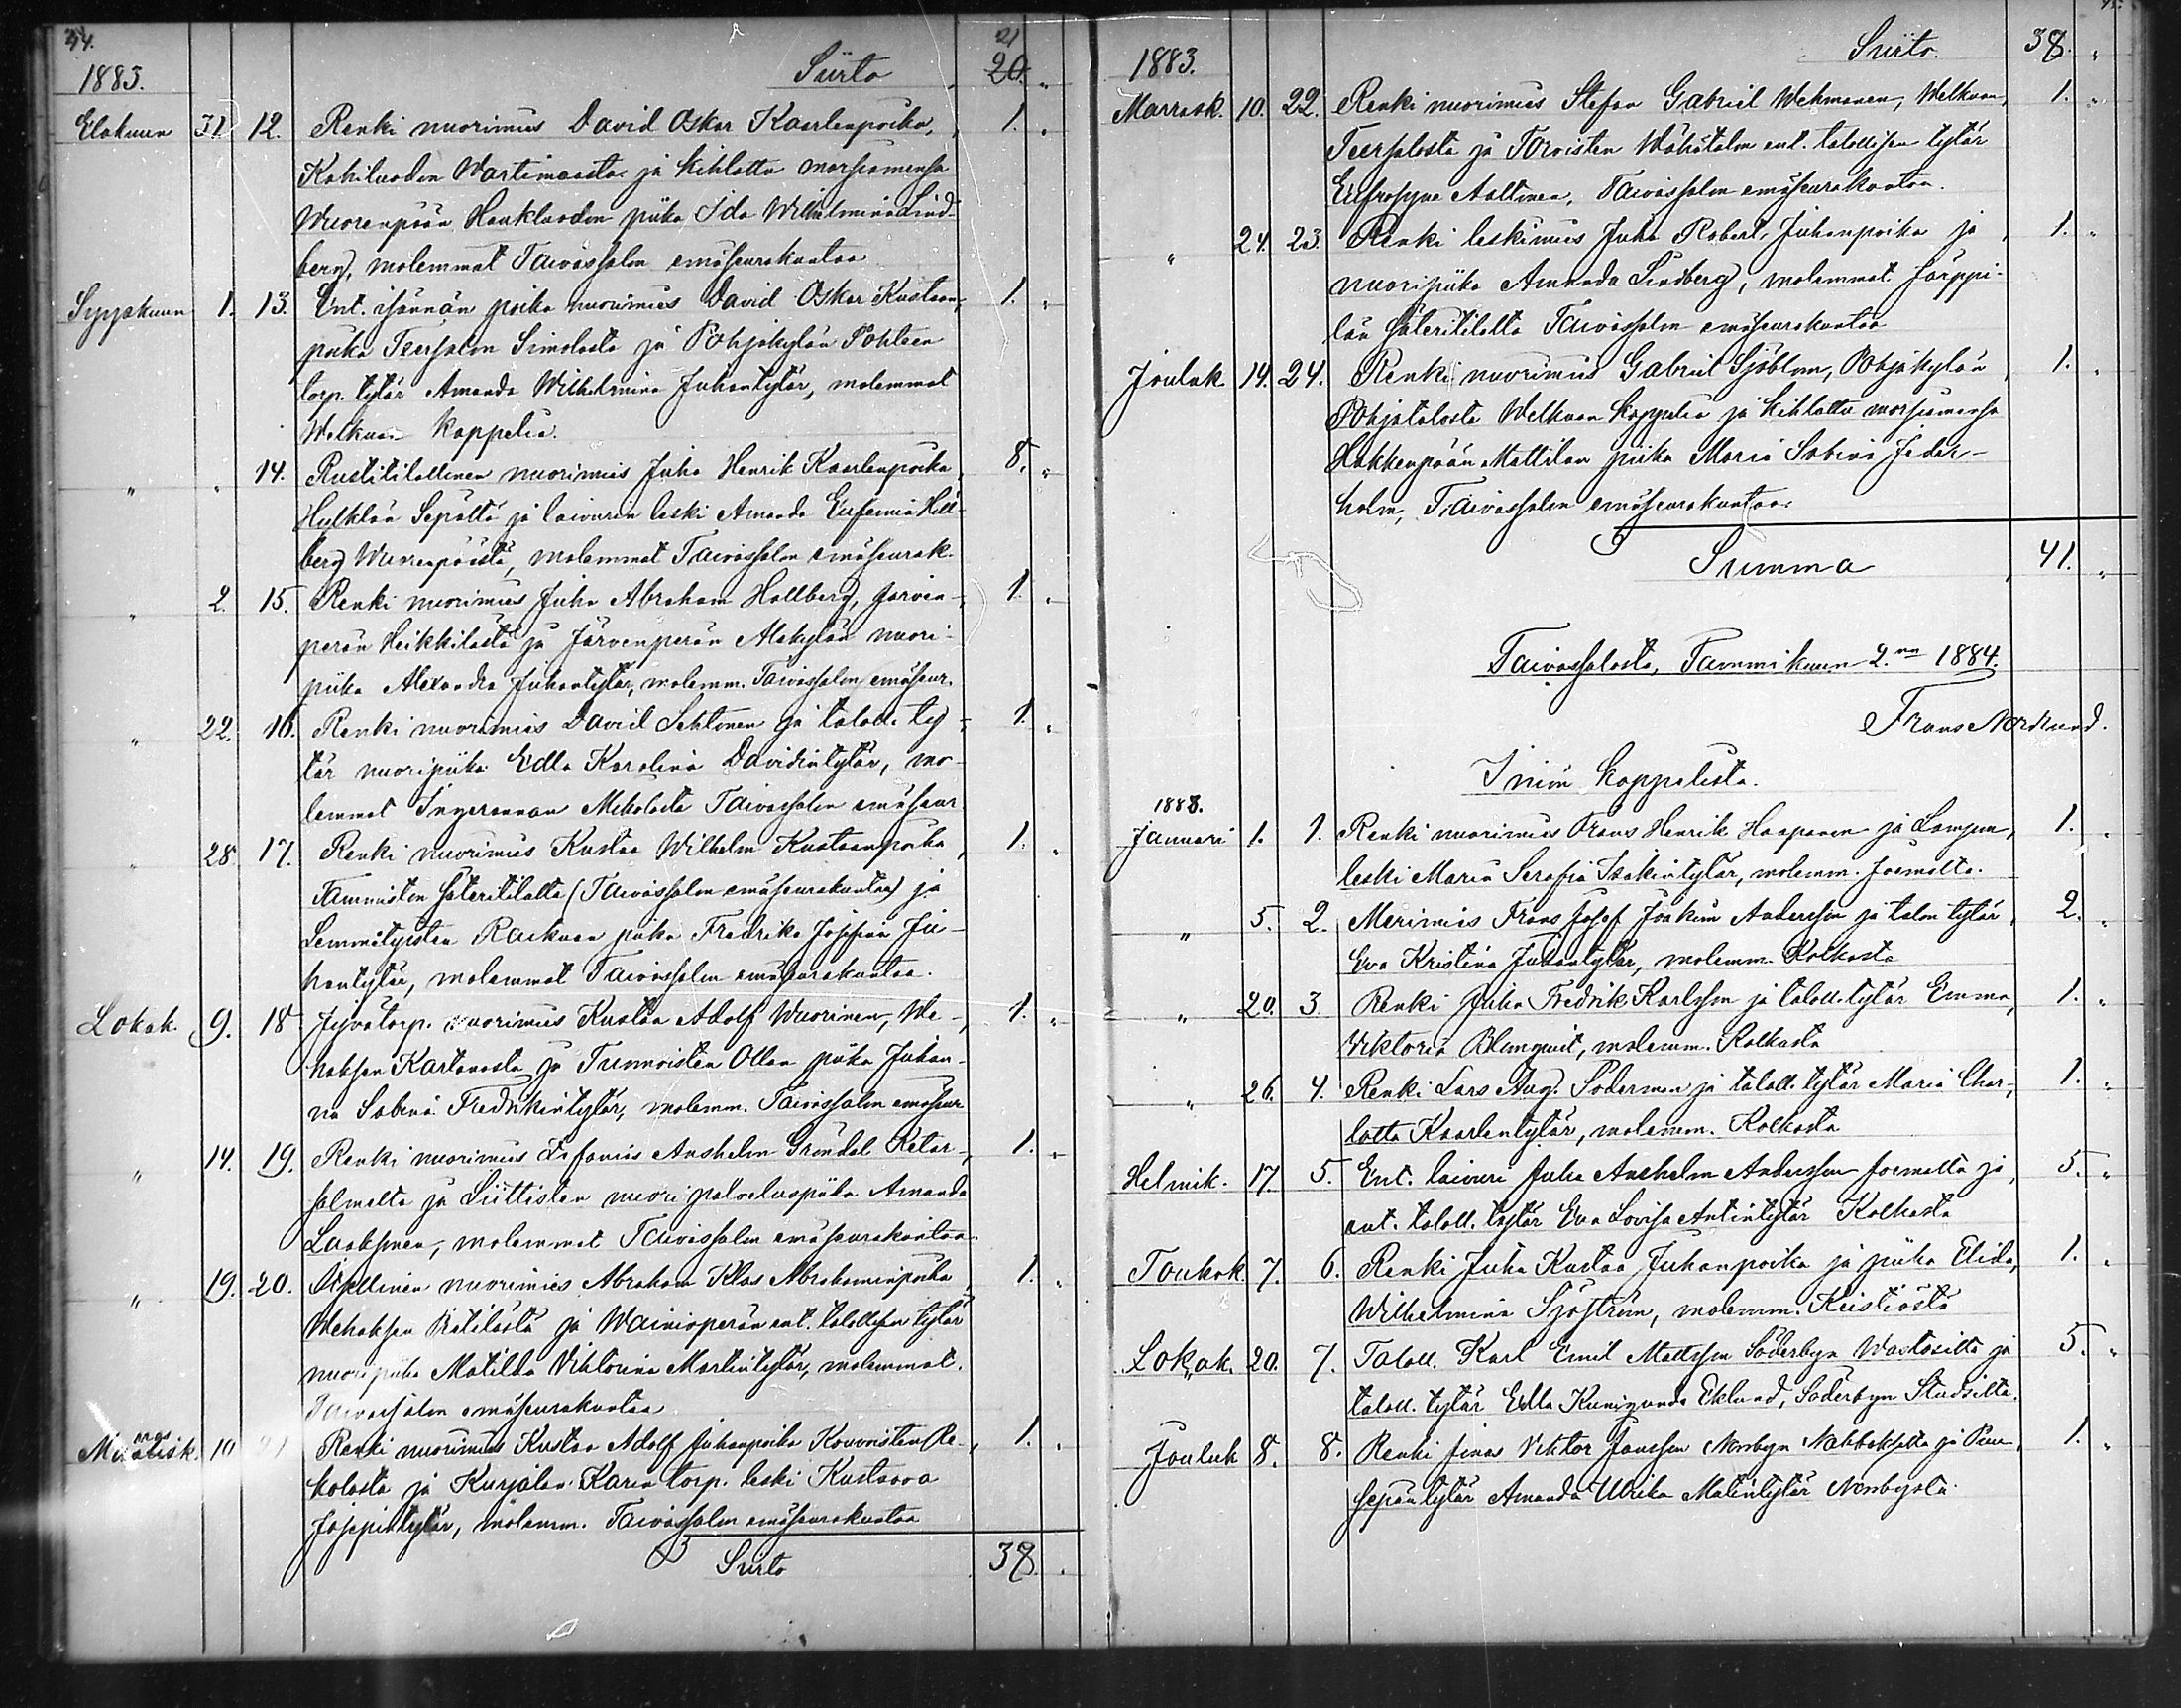 44.
1883. Siirto 21 20. "
Elokuun 31. 12. Renki nuorimies David Oskar Kaarlenpoika, 1. "
Kahiluodon Wartimaasta ja kihlattu morsiamensa
Wuorenpään Hauklaodon piika Ida Wilhelmina Lind-
berg, molemmat Taivassalon emäseurakuntaa
Syyskuun 1. 13. Ent. isännän poika nuorimies David Oskar Kustaan- 1. "
poika Teersalon Simolasta ja Pohjakylän Pohteen
torp. tytär Amanda Wilhelmina Juhantytär, molemmat
Welkuan kappelia.
" " 14. Rustitilallinen nuorimies Juha Henrik Kaarlenpoika 8. "
Hulklan Sepältä ja laivurin leski Amanda Eufemia Hell-
berg Wuorenpäästä, molemmat Taivassalon emäseurak.
" 2. 15. Renki nuorimies Juha Abraham Hallberg, Järven- 1. "
perän Heikkilästä ja Järvenperän Alakylän nuori-
piika Alexandra Juhantytär, molemm. Taivassalon emäseur.
" 22. 16. Renki nuorimies David Lehtonen ja talol. ty- 1. "
tär nuoripiika Edla Karolina Davidintytär, mo-
lemmat Ingerannan Mikolasta Taivassalon emäseur.
" 28. 17. Renki nuorimies Kustaa Wilhelm Kustaanpoika 1. "
Tammiston säteritilalta (Taivassalon emäseurakuntaa) ja
Lemmityisten Raikuan piika Fredrika Josefiina Ju-
hantytär, molemmat Taivassalon emäseurakuntaa.
Lokak. 9. 18. Jyvätorp. nuorimies Kustaa Adolf Wuorinen, We- 1. "
haksen Kartanosta ja Tunnoisten Ollan piika Juhan-
na Sabina Fredrikintytär, molemm. Taivassalon emäseur
" 14. 19. Renki nuorimies Anshelm Gröndal Ketar- 1. "
salmelta ja Siittisten nuori palveluspiika Amanda
Laaksonen, molemmat Taivassalon emäseurakuntaa.
" 19. 20. Itsellinen nuorimies Abraham Klas Abrahaminpoika 1. "
Wehaksen ja Wainioperän ent. talollisen tytär
nuoripiika Matilda Viktoriina Martintytär, molemmat
Taivassalon emäseurakuntaa
Marrask. 10 21 Renki nuorimies Kustaa Adolf Juhanpoika Kouvoisten Re- 1. "
kolasta ja Kurjalan Karin torp. leski Kustaava
Josepintytär, molemm. Taivassalon emäseurakuntaa
Siirto 38. "
1883. Siirto. 38. "
Marrask. 10. 22. Renki nuorimies Stefan Gabriel Wehmanen, Welkuan, 1. "
Teersalosta ja Torvisten Wähätalon ent. talollisen tytär
Eufrosyne Aaltonen, Taivassalon emäseurakuntaa.
" 24. 23. Renki leskimies Juha Robert Juhanpoika ja 1. "
nuoripiika Amanda Lindberg, molemmat Särppi-
län säteritilalta Taivassalon emäseurakuntaa
Jouluk 14. 24. Renki nuorimies Gabriel Sjöblom, Pohjakylän 1. "
Pohjatalosta Welkuan kappelia ja kihlattu morsiamensa
Hakkenpään Mattilan piika Maria Sabina Seder-
holm, Taivassalon emäseurakuntaa.
Summa 41. "
Taivassalosta, Tammikuun 2.na 1884.
Frans Nordlund.
Iniön kappelista.
1883.
Januari 1. 1. Renki nuorimies Frans Henrik Haapanen ja Lampun 1. "
leski Maria Serafia Isakintytär, molemm. Jermolta.
" 5. 2. Merimies Frans Josef Joakim Andersson ja talon tytär 2. "
Eva Kristina Juhantytär, molemm. Kolkosta
" 20. 3. Renki Juha Fredrik Karlsson ja taloll. tytär Emma 1. "
Viktoria Blomqvist, molemm. Kolkosta
" 26. 4. Renki Lars Aug. Söderman ja taloll. tytär Maria Char- 1. "
lotta Kaarlentytär, molemm. Kolkosta
Helmik. 17. 5. Ent. laivuri Juha Anshelm Andersson Jermolta ja 5. "
ent. taloll. tytär Eva Lovisa Antintytär Kolkosta
Toukok. 7. 6. Renki Juha Kustaa Juhanpoika ja piika Elida 1. "
Wilhelmina Sjöström, molemm. Keistiöstä
Lokak. 20. 7. Taloll. Karl Emil Mattsson Söderbyn Wastasilta ja 5. "
taloll. tytär Edla Kunigunda Eklund, Söderbyn Studsilta.
Jouluk 8. 8. Renki Jonas Viktor Jansson Norrbyn ja Puu- 1. "
sepän tytär Amanda Ulrika Matintytär Norrbystä.